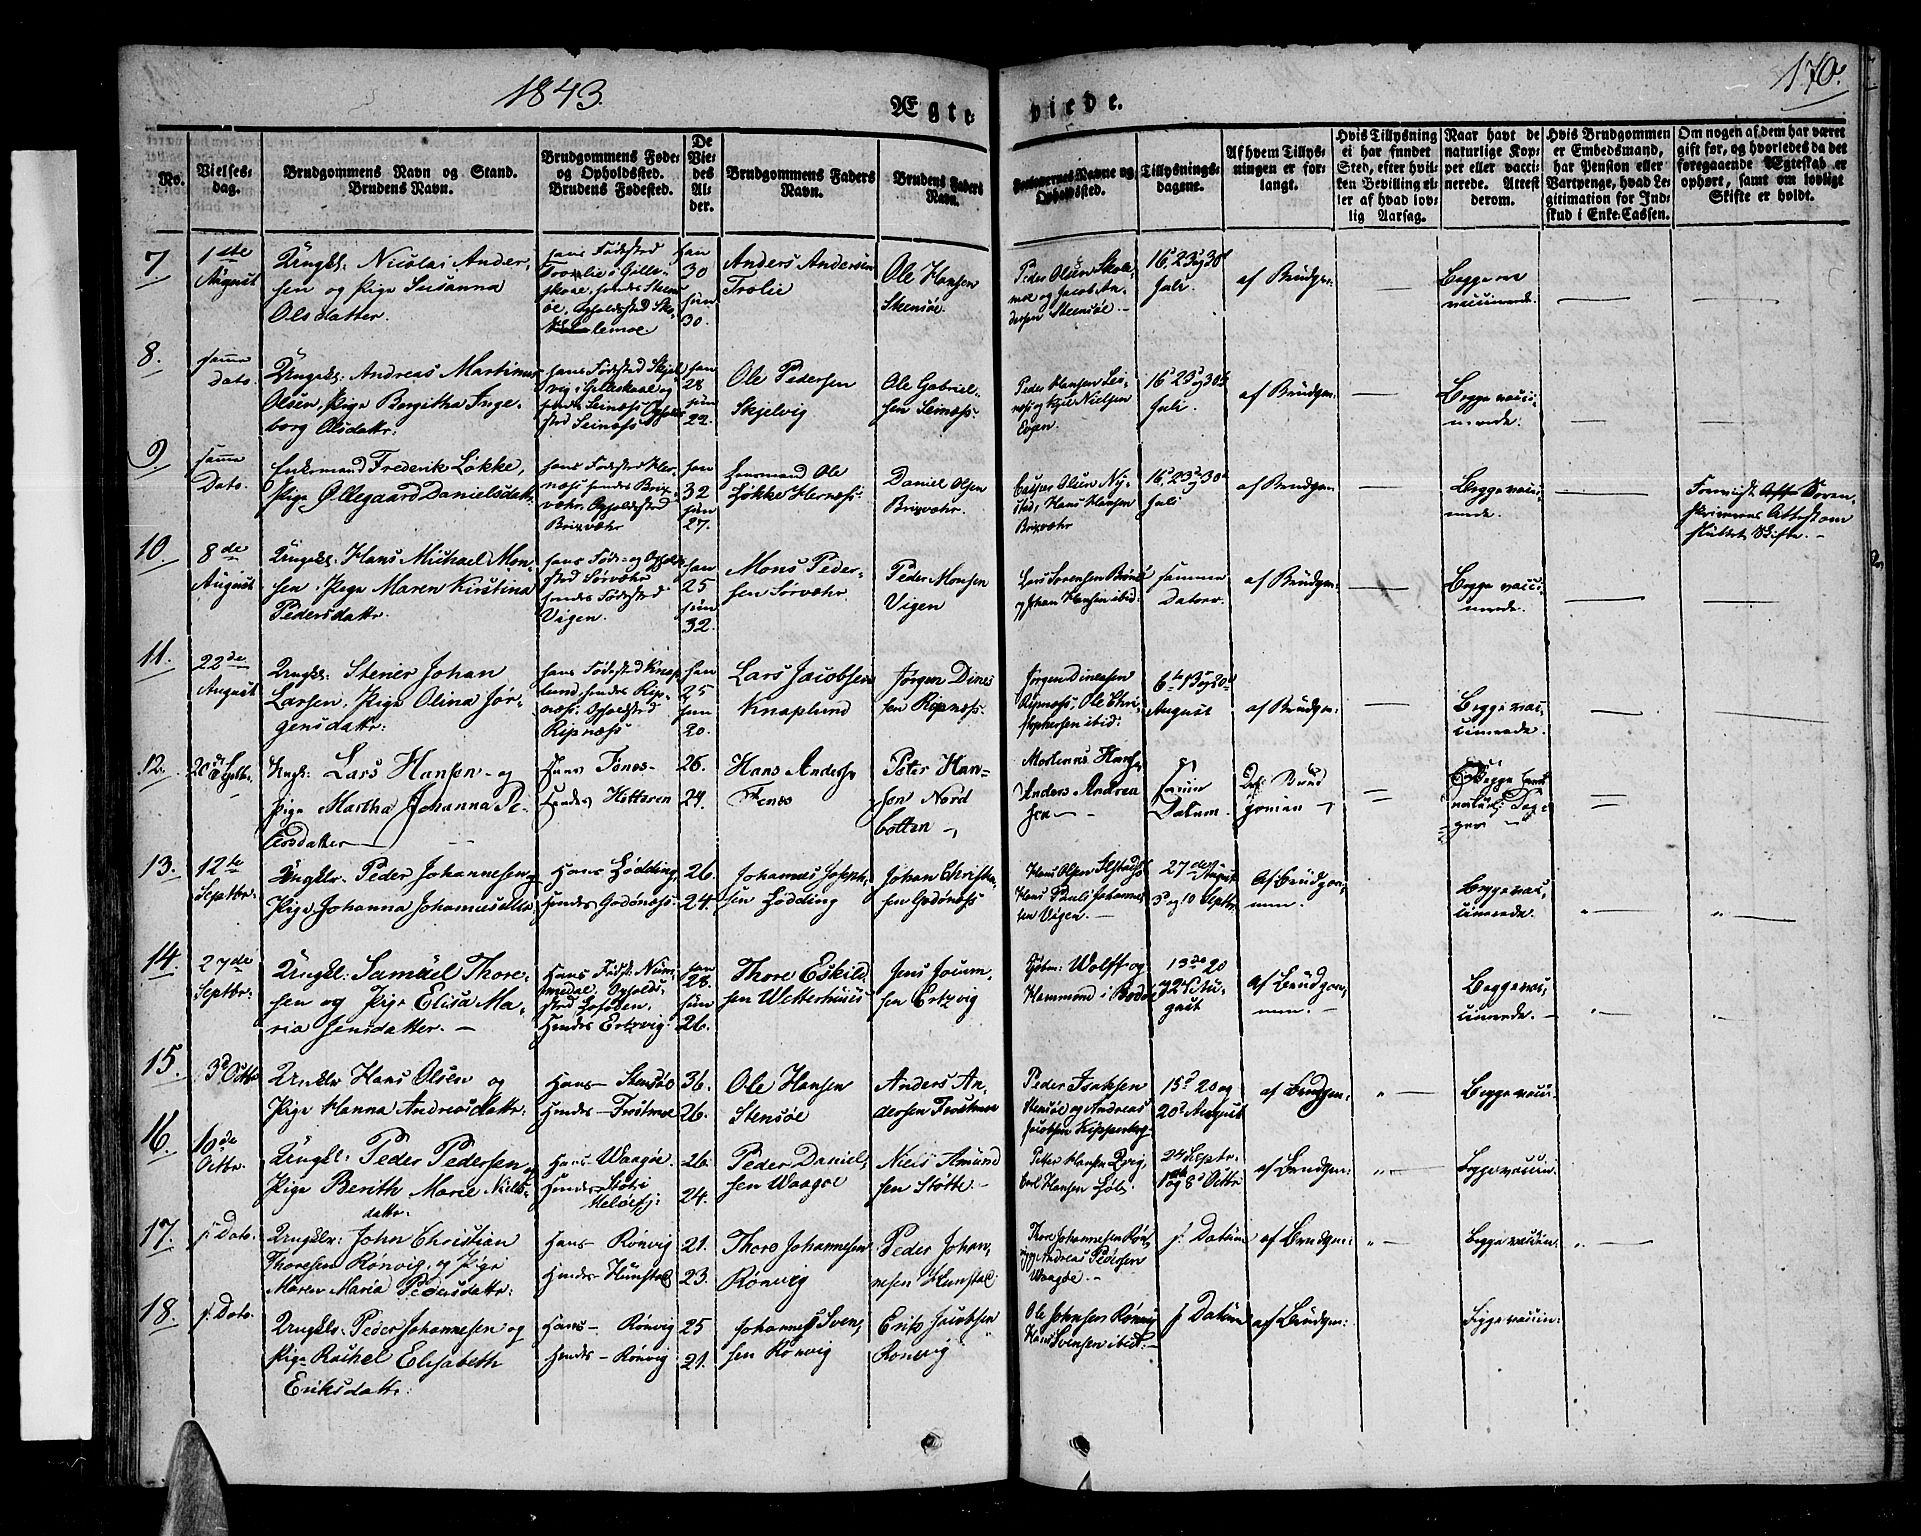 1843.
Ægte
viede.
170.
No.
Vielses-
dag.
Brudgommens Navn og Stand.
Brudens Navn.
Brudgommens Føde-
og Opholdssted.
Brudens Fødested.
De
Vie-
des
Al-
der.
Brudgommens Faders
Navn.
Brudens Faders
Navn.
Forlovernes Navne og
Opholdssted.
Tillysnings-
dagene.
Af hvem Tillys-
ningen er for-
langt.
Hvis Tillysning
ei har fundet
Sted, efter hvil-
ken Bevilling el-
ler af hvad lov-
lig Aarsag.
Naar havt de
naturlige Kop-
per eller vacci-
nerede. Attest
derom.
Hvis Brudgommen
er Embedsmand,
har Pension eller
Vartpenge, hvad Le-
gitimation for Ind-
skud i Enke-Cassen.
Om nogen af dem har været
gift før, og hvorledes da det
foregaaende Ægteskab er
ophørt, samt om lovligt
Skifte er holdt.
7.
1ste
August
Ungkl: Nicolai Ander-
sen og Pige Susanna
Olsdatter.
hans Fødested
Trolie i Gille-
skaal, hendes Steens-
øe, Opholdssted
han
30
hun
30.
Anders Andersen
Trolie
Ole Hansen
Steensøe
Peder Olsen Skole-
moe og Jacob An-
dersen Steensøe.
16 23 og 30
Juli
af Brudgom:
Begge
vaccinerede.
8.
samme
Dato.
Ungkl: Andreas Martinus
Olsen, Pige Bergitha Inge-
borg Olsdattr:
hans Fødested Skjel-
vig i Gilleskaal og
hendes Seinæs, Ophold-
sted Seinæs
han
28
hun
22.
Ole Pedersen
Skjelvig
Ole Gabriel-
sen Seinæs
Peder Hansen Sei-
næs og Kjel Nielsen
Evjen.
16 23 og 30
Juli.
af Brudgom:
Begge vacci-
nerede.
9.
samme
Dato.
Enkemand Frederik Løkke,
Pige Øllegaard Danielsdattr
hans Fødested Her-
næs, hendes Brix-
vær, Opholdssted
Brixvær
han
32
hun
27.
Ole
Løkke Hernæs
Daniel Olsen
Brixvær
Casper Olsen Ny-
stad, Hans Hansen
Brixvær
16 23 og 30
Juli
af Brudgom
Begge vacci-
nerede.
Soren-
skriverens Attest om
sluttet Skifte.
10.
8de
August
Ungkl: Hans Michael Mon-
sen, Pige Maren Kirstina
Pedersdattr.
hans Føde- og Ophold-
sted Sørvær
hendes Fødested
Vigen.
han
25
hun
32.
Mons Peder-
sen Sørvær.
Peder Monsen
Vigen
Lars Sørensen
og Johan Hansen ibid:
samme
Datoer.
af Brudgom:
Begge vacci-
nerede.
11.
22de
August
Ungkl: Stener Johan
Larsen, Pige Olina Jør-
gensdattr:
hans Fødested Knap-
lund, hendes Rip-
næs. Opholdssted
Ripnæs
han
25
hun
20.
Lars Jacobsen
Knaplund
Jørgen Dines-
sen Ripnæs.
Jørgen Dinesen
Ripnæs, Ole Chri-
stophersen ibid:
6te 13 og 20
August
af Brudgom:
Begge vac-
cinerede.
12.
Ungk: Lars Hansen og
Pige Martha Johanna Pe-
tersdatter
Hans Fenes
Hendes Hitteren
26.
24.
Hans Anders
Fenes
Peter Han-
sen Nord
botten
Mortenus Hans
Anders Andrea
sen
Datum
Brud
gomen
Begge
13.
12te
Septbr:
Ungklr. Peder Johannesen og
Pige Johanna Johannesdattr
Hans Lødding
Hendes Godønæs
26.
24.
Johannes Joseph-
sen Lødding
Johan Christia-
sen Godønæs
Hans Olsen
Hans Paul Johannes-
sen Vigen.
27de August
3 og 10 Septbr.
Af Brudgom-
men.
Begge vac-
cinerede.
14.
27de
Septbr:
Ungkl: Samuel Thore-
sen og Pige Elisa Ma-
ria Jensdatter.
Hans Fødst: Num-
medal. Opholds-
sted Lofoden.
Hendes Ertzvig.
han
28.
hun
26.
Thore Eskild-
sen Wetterhuus
Jens Joium-
sen Ertzvig
Wolff og
Hammond i Bodø
13de 20
og 24 Au-
gust
Af Brudgom-
men.
Begge vac-
cinerede.
15.
3 Octbr
Ungklr Hans Olsen og
Pige Hanna Andreasdattr.
Hans Stensøe
Hendes Tustmoe
36.
26.
Ole Hansen
Stensøe
Anders An-
dersen Tostmoe
Peder Isaksen
Stensøe og Andreas
Jacobsen Kipperberg
13 20 og
20 August
af Brudgom:
Begge vaccin.
16.
10de
Octbr.
Ungkl: Peder Pedersen og
Pige Berith Marie Niels-
dattr.
Hans Waagøe
Hendes Støtt
Meløefj:
26.
24.
Peder Daniel-
sen Waagøe
Niels Amund-
sen Støtt
Peter Hansen
Carl Hansen
24 Septr.
1 og 8 Octbr
af Brudgom:
Begge vaccin:
17.
s. Dato.
Ungklr: John Christian
Thoresen Rønvig, og Pige
Maren Maria Pedersdattr:
Hans Rønvig
Hendes Hunstad
21.
23.
Thore Johannesen
Rønvig
Peder Johan-
nesen Hunstad
Thore Johannesen Røn-
vig Andreas Pedersen
Waagøe.
s. Datum
af Brudgom:
Begge vaccin.
18.
s. Dato.
Ungkl: Peder Johannesen og
Pige Rachel Elisabeth
Eriksdattr:
Hans Rønvig
Hendes Rønvig
25
21.
Johannes Sven-
sen Rønvig
Erik Jacobsen
Rønvig
Ole Johnsen Rønvig
Hans Svensen ibid:
s. Datum
af Brudgom:
Begge vaccin: